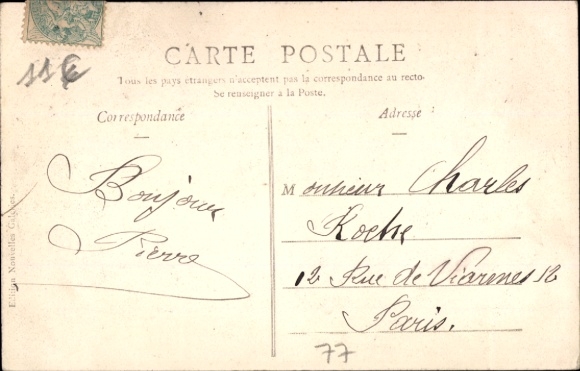 11€
CARTE POSTALE
Tous les pays étrangers n'acceptent pas la correspondance au recto-
Se renseigner à la Poste.
Correspondance
Bonjour
Pierre
Adresse :
Monsieur Charles
Roche
12 Rue de Viarmes 12
Paris.
77
Edition Nouvelles Galeries.